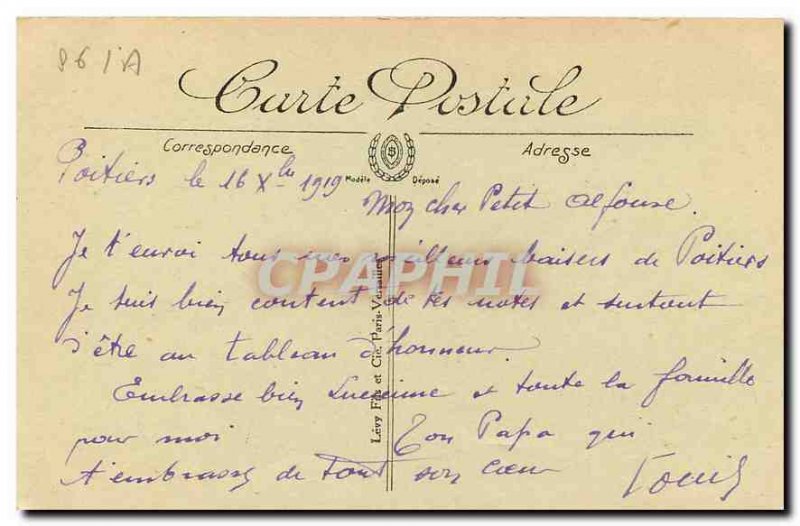 861A
Carte Postale
Correspondance
Adresse
Modèle Déposé
Poitiers le 16 Xbre 1919
Mon cher Petit Alfonse.
Je t'envoi tous mes meilleurs baisers de Poitiers
Je suis bien content de tes notes et surtout
d'être au tableau d'honneur.
Embrasse bien Lucienne et toute la famille
pour moi Ton Papa qui
t'embrasse de tout son cœur
Louis
Lévy Fils et Cie, Paris-Versailles
CPAPHIL